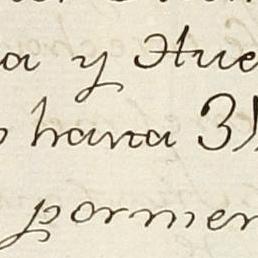 a y Hue
hana 3
pormen